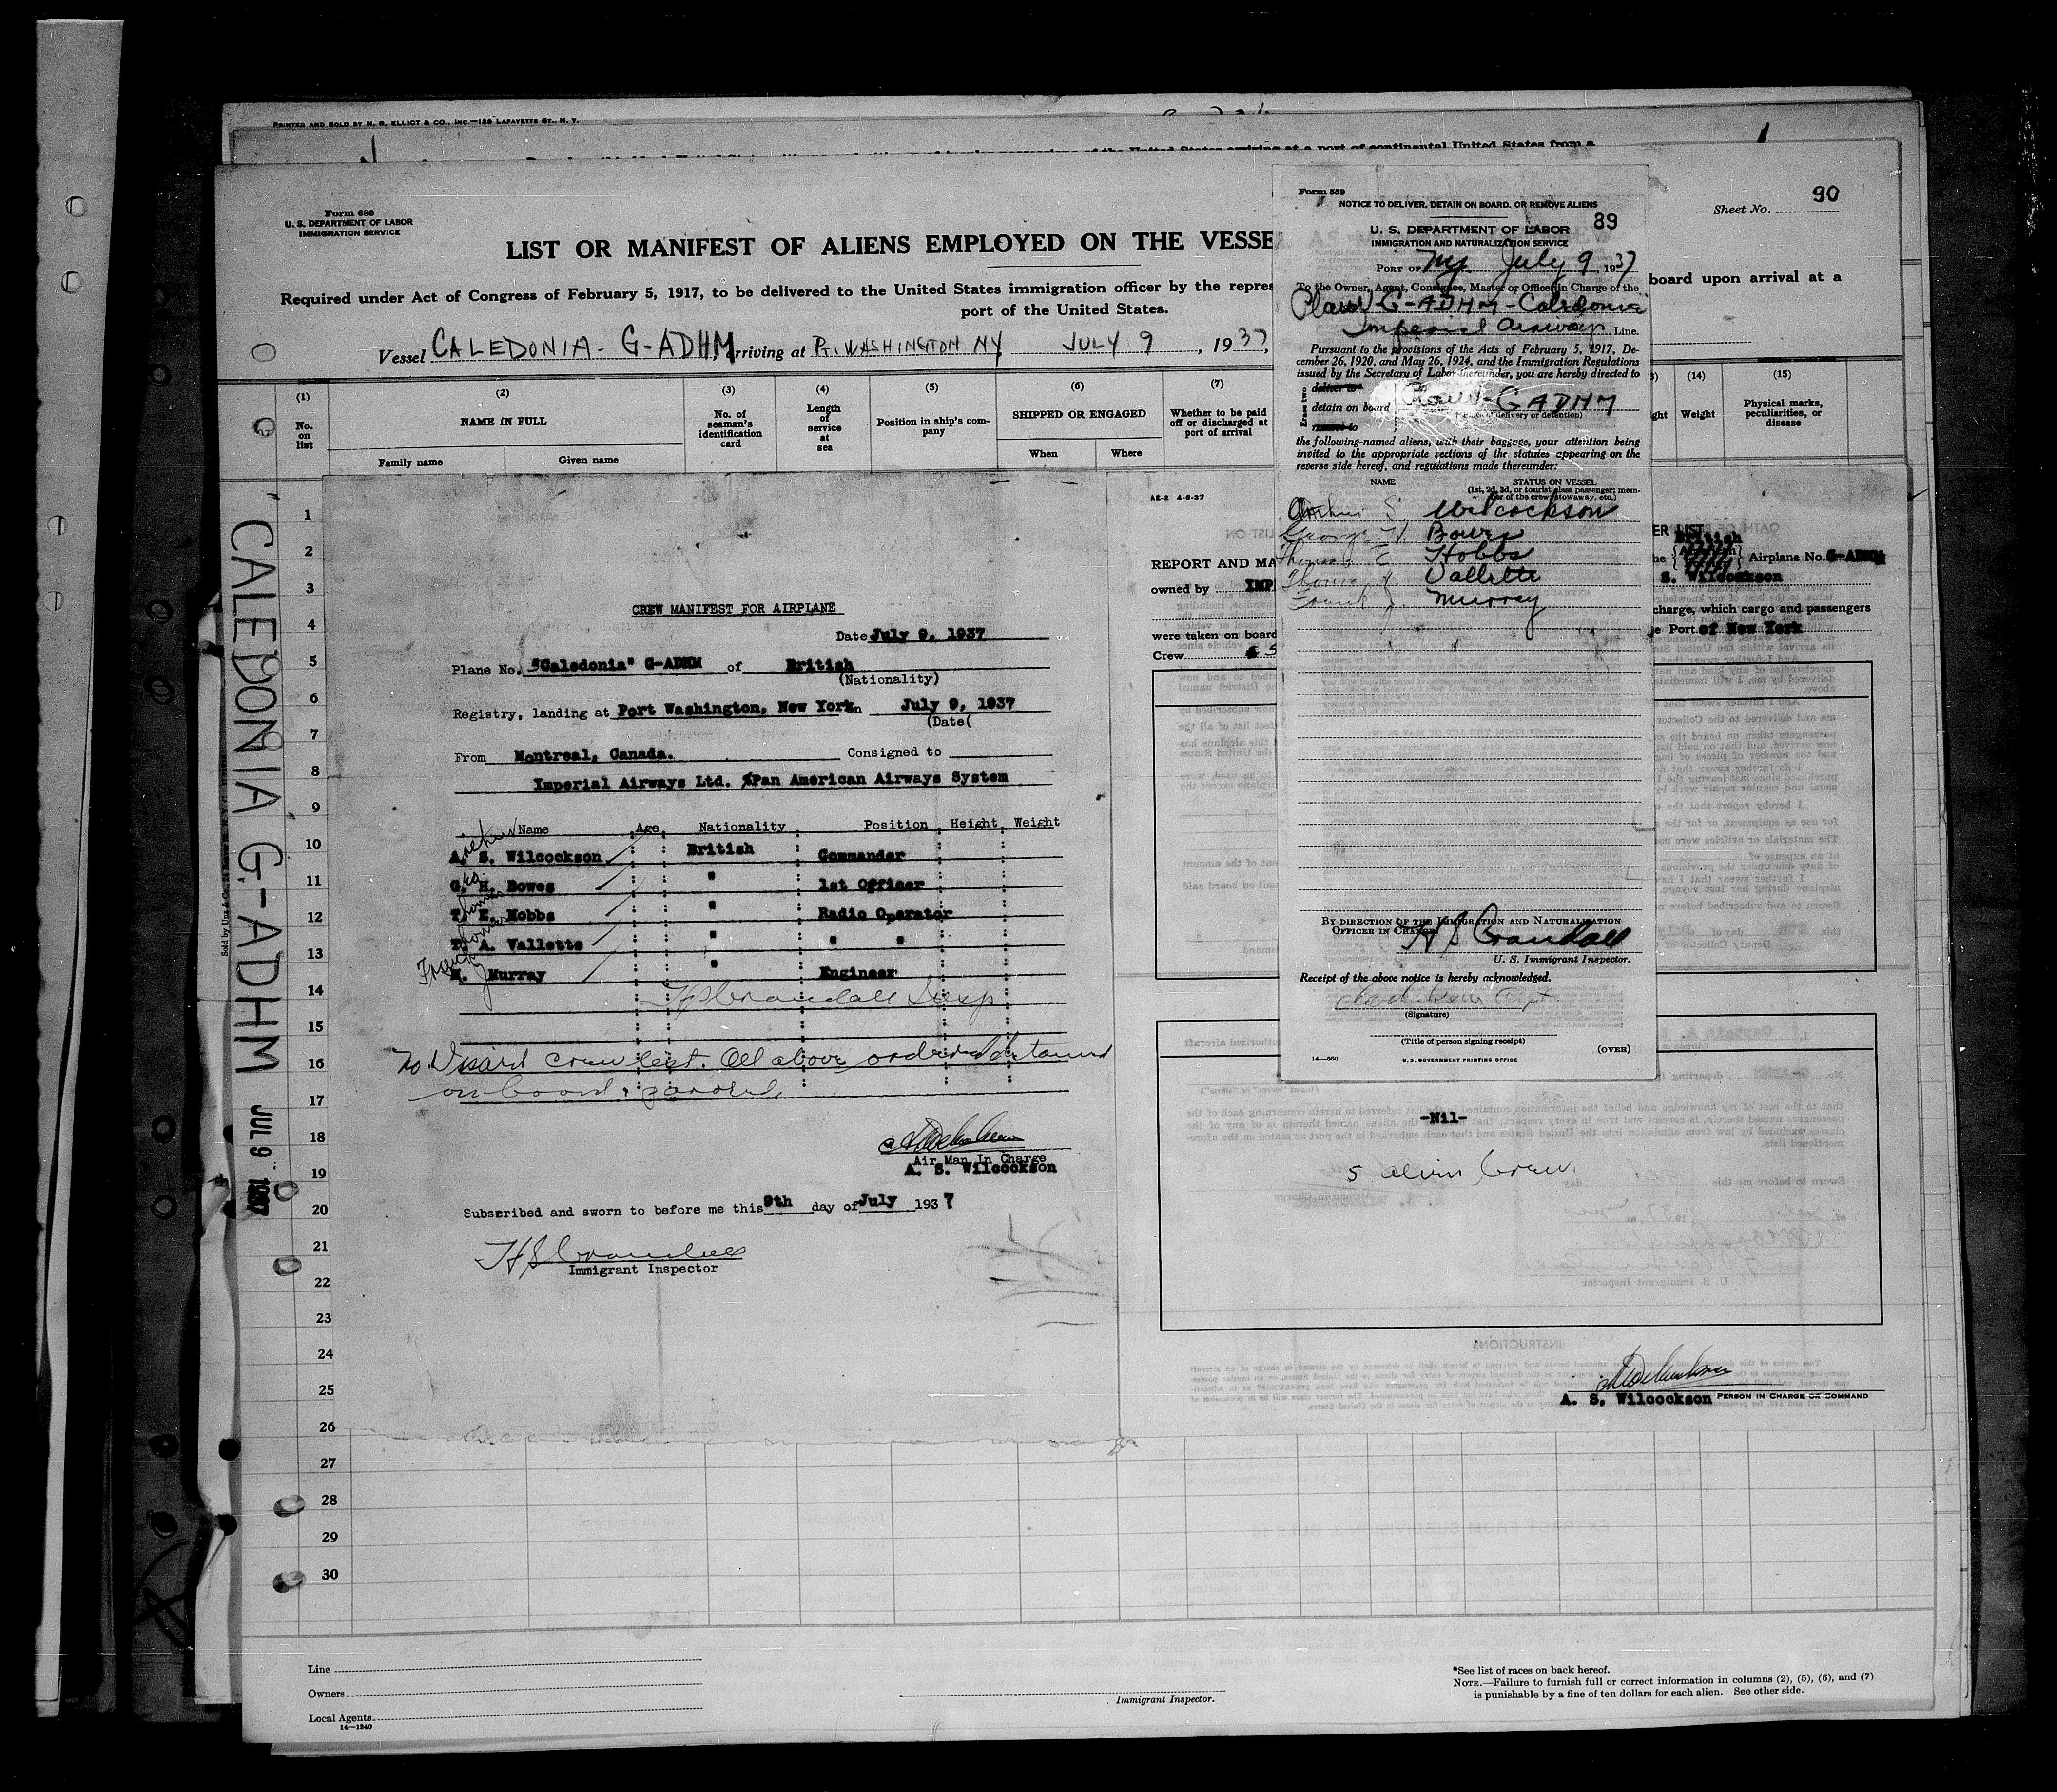 PRINTED AND SOLD BY H. R. ELLIOT & CO., INC.—129 LAFAYETTE ST., N. Y.
of the United States arriving at a port of continental United States from a
Form 680
U. S. DEPARTMENT OF LABOR
IMMIGRATION SERVICE
Sheet No. 90
LIST OR MANIFEST OF ALIENS EMPLOYED ON THE VESSE
Required under Act of Congress of February 5, 1917, to be delivered to the United States immigration officer by the repres
board upon arrival at a
port of the United States.
Vessel CALEDONIA - G-ADHM, arriving at PT. WASHINGTON NY, JULY 9, 1937,
(1) (2) (3) (4) (5) (6) (7) (14) (15)
No. on list
NAME IN FULL
Family name Given name
No. of seaman's identification card
Length of service at sea
Position in ship's company
SHIPPED OR ENGAGED
When Where
Whether to be paid off or discharged at port of arrival
ght
Weight
Physical marks, peculiarities, or disease
1
2
3
4
5
6
7
8
9
10
11
12
13
14
15
16
17
18
19
20
21
22
23
24
25
26
27
28
29
30
CALEDONIA G-ADHM JUL 9 1937
CREW MANIFEST FOR AIRPLANE
Date July 9, 1937
Plane No. "Caledonia" G-ADHM of British
(Nationality)
Registry, landing at Port Washington, New York on July 9, 1937
(Date(
From Montreal, Canada. Consigned to
Imperial Airways Ltd. Pan American Airways System
Name Age Nationality Position Height Weight
Arthur
A. S. Wilcockson British Commander
Geo
G. H. Bowes " 1st Officer
Thomas
T. E. Hobbs " Radio Operator
Thomas
T. A. Vallette " " "
Frank J
M. Murray " Engineer
H S Crandall Insp
No Visaed crew list. All above ordered detained
on board & paroled
Air Man In Charge
A. S. Wilcockson
Subscribed and sworn to before me this 9th day of July 1937
H S Crandall
Immigrant Inspector
AE-2 4-6-37
REPORT AND MA
owned by IMP
were taken on board
Crew 5
ER LIST
British
he Airplane No. G-ADHM
S. Wilcockson
charge, which cargo and passengers
e Port of New York
-Nil-
5 alien Crew.
A. S. Wilcockson PERSON IN CHARGE OR COMMAND
Form 539
NOTICE TO DELIVER, DETAIN ON BOARD, OR REMOVE ALIENS
89
U. S. DEPARTMENT OF LABOR
IMMIGRATION AND NATURALIZATION SERVICE
PORT OF NY July 9, 1937
To the Owner, Agent, Consignee, Master or Officer in Charge of the
Plane G-ADHM - Caledonia
Imperial Airways Line.
Pursuant to the provisions of the Acts of February 5, 1917, De-
cember 26, 1920, and May 26, 1924, and the Immigration Regulations
issued by the Secretary of Labor thereunder, you are hereby directed to
Erase two
deliver to
detain on board Plane G ADHM
(Place of delivery or detention)
remove to
the following-named aliens, with their baggage, your attention being
invited to the appropriate sections of the statutes appearing on the
reverse side hereof, and regulations made thereunder:
NAME STATUS ON VESSEL
(1st, 2d, 3d, or tourist class passenger; mem-
ber of the crew, stowaway, etc.)
Arthur S Wilcockson
George H. Bowes
Thomas E Hobbs
Thomas A. Vallette
Frank J. Murray
BY DIRECTION OF THE IMMIGRATION AND NATURALIZATION
OFFICER IN CHARGE
H S Crandall
U. S. Immigrant Inspector.
Receipt of the above notice is hereby acknowledged.
(Signature)
(Title of person signing receipt)
14—660 U.S. GOVERNMENT PRINTING OFFICE (OVER)
Line
Owners
Local Agents
14—1240
Immigrant Inspector.
*See list of races on back hereof.
NOTE.—Failure to furnish full or correct information in columns (2), (5), (6), and (7)
is punishable by a fine of ten dollars for each alien. See other side.